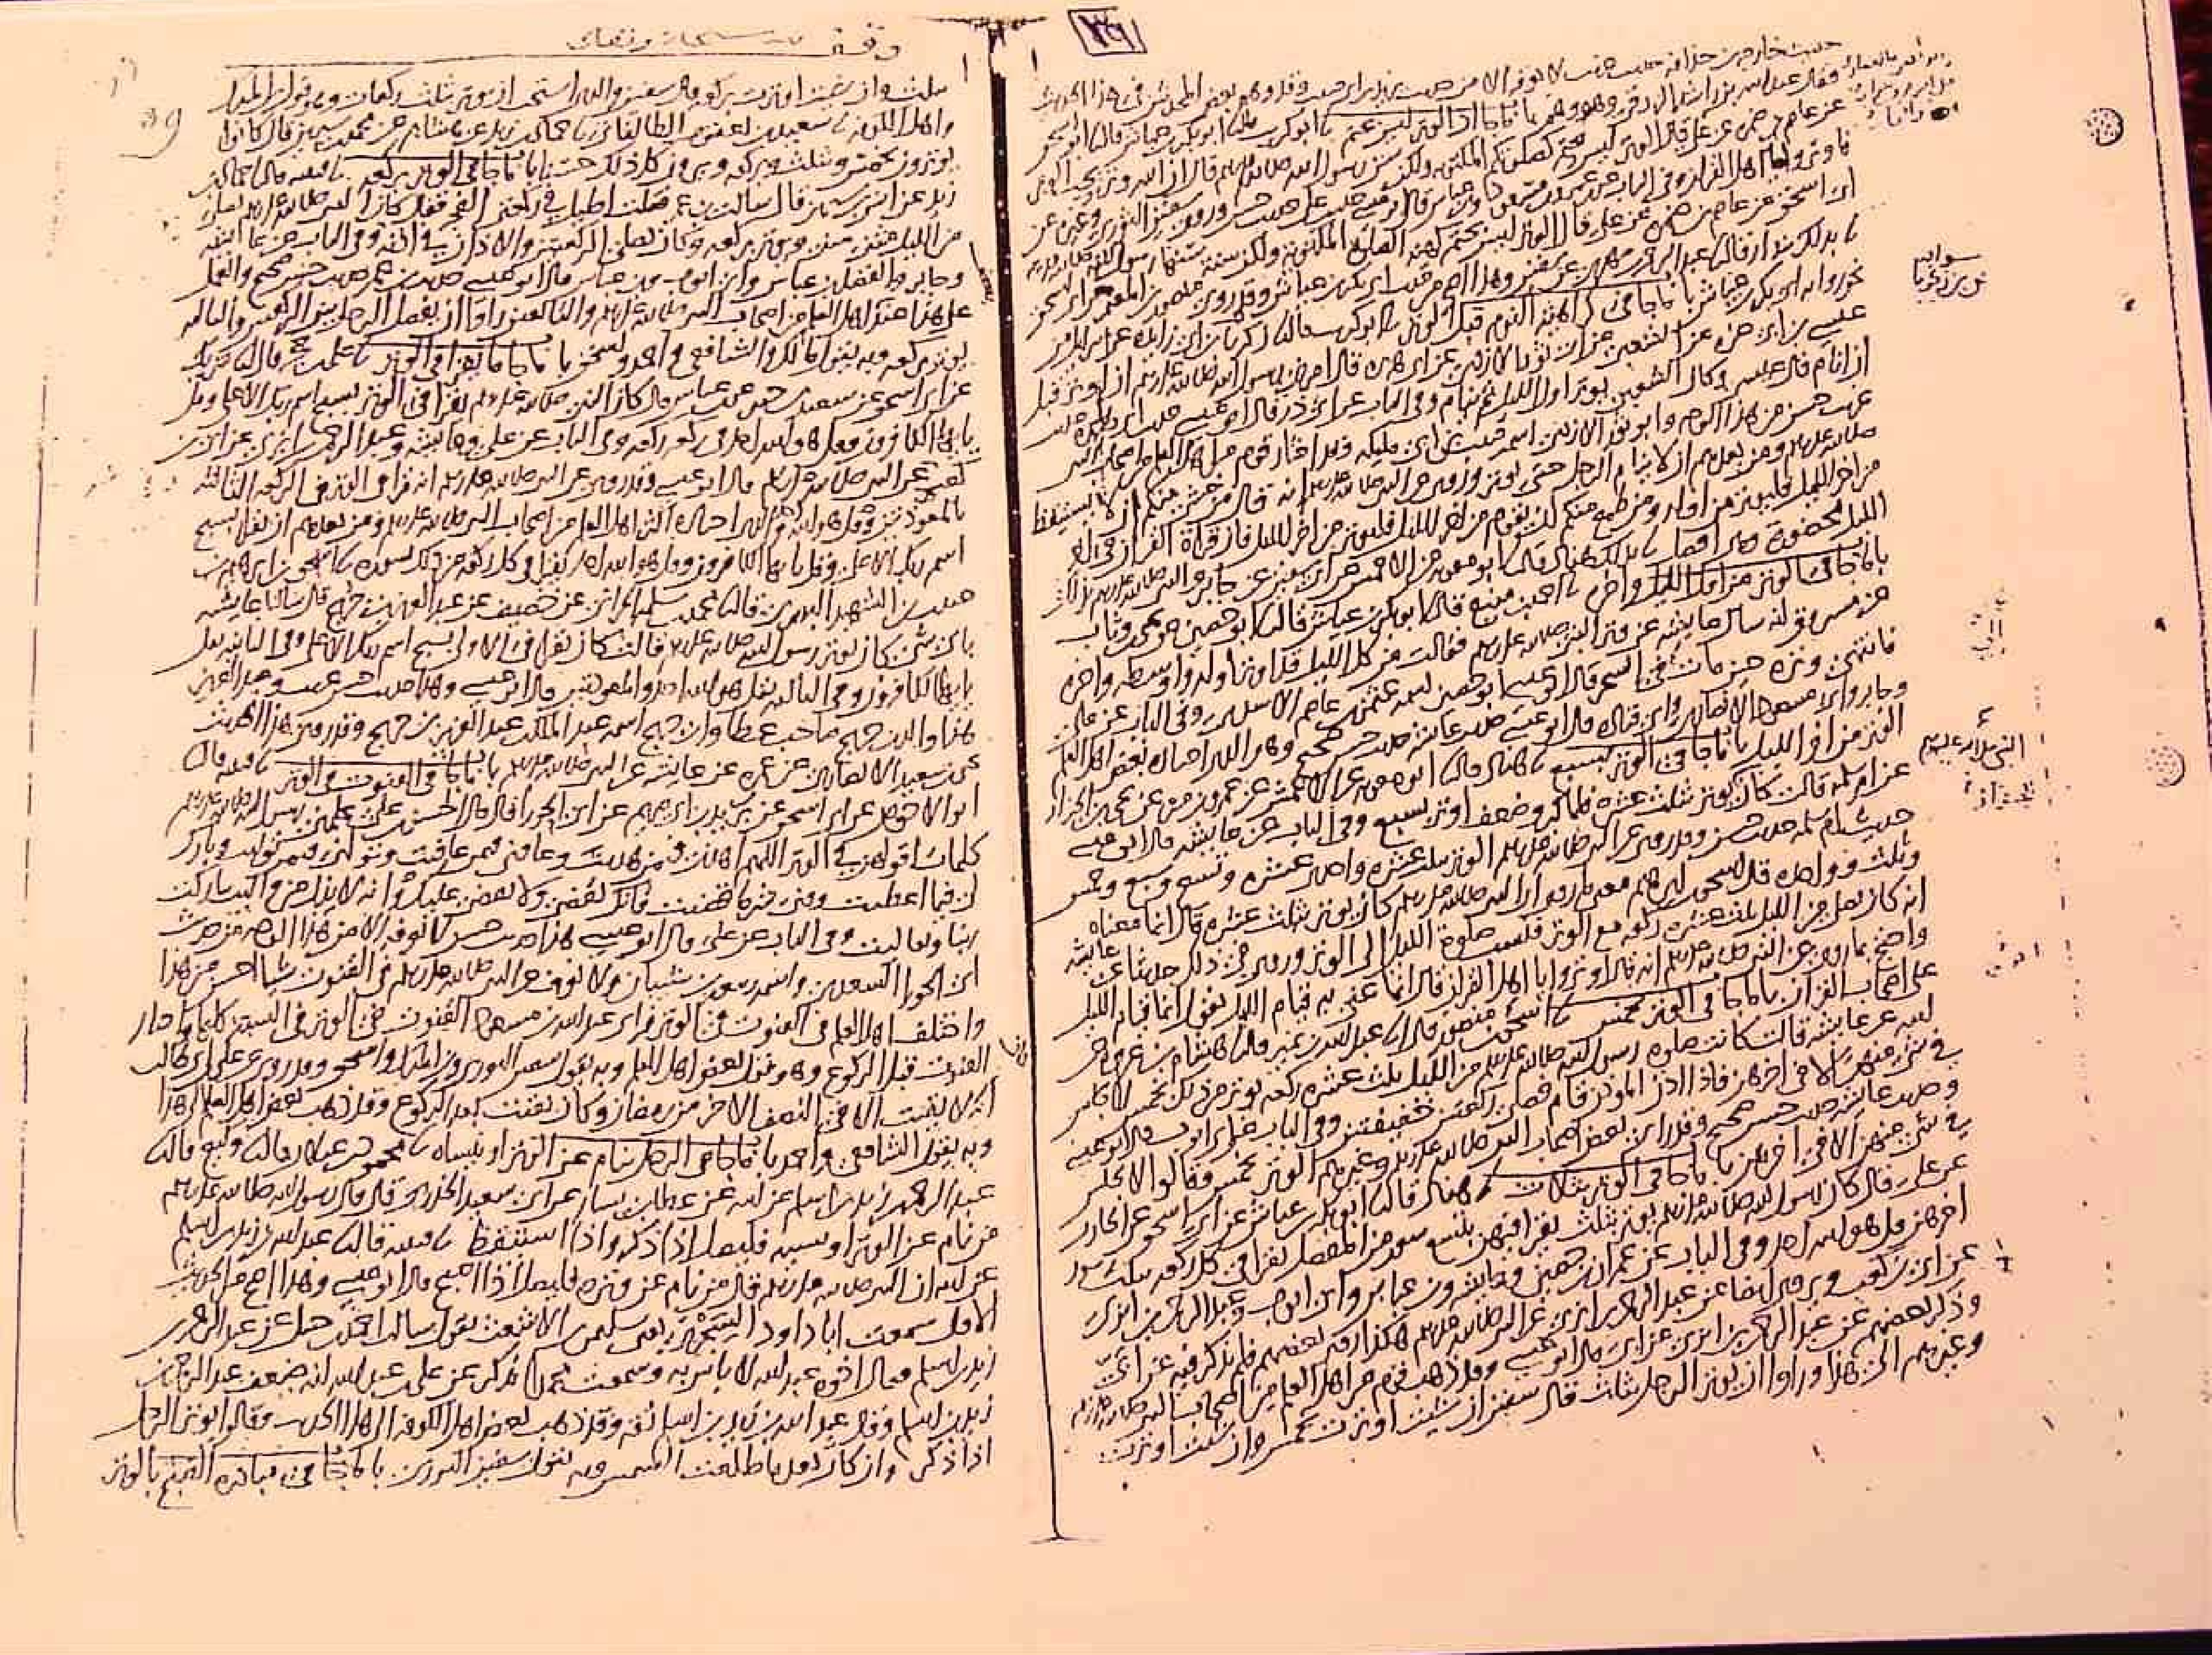 ٣٩
حديث خارجة بن حذافة حديث غريب لا نعرفه الا من حديث يزيد بن ابي حبيب وقد وهم بعض المحدثين في هذا الحديث
فقال عبد الله بن راشد الزرقي وهو وهم باب ما جا ان الوتر ليس بحتم نا ابو كريب نا ابو بكر بن عياش قال نا ابو اسحق
عن عاصم بن ضمرة عن علي قال الوتر ليس بحتم كصلوتكم المكتوبة ولكن سن رسول الله صلى الله عليه وسلم قال ان الله وتر يحب الوتر
فاوتروا يا اهل القران وفي الباب عن بن عمر وابن مسعود وابن عباس قال ابو عيسى حديث علي حديث حسن وروى سفين الثوري وغيره عن
ابي اسحق عن عاصم بن ضمرة عن علي قال الوتر ليس بحتم كهيئة الصلوة المكتوبة ولكن سنة سنها رسول الله صلى الله عليه وسلم
نا بذلك بندار قال نا عبد الرحمن بن مهدي عن سفين وهذا اصح من حديث ابي بكر بن عياش وقد روى منصور بن المعتمر عن ابي اسحق
نحو رواية ابي بكر بن عياش باب ما جا في كراهية النوم قبل الوتر نا ابو كريب قال نا زكريا بن ابي زائدة عن اسرائيل عن
عيسى بن ابي عزة عن الشعبي عن ابي ثور الازدي عن ابي هريرة قال امرني رسول الله صلى الله عليه وسلم ان اوتر قبل
ان انام قال عيسى وكان الشعبي يوتر اول الليل ثم ينام وفي الباب عن ابي ذر قال ابو عيسى حديث ابي هريرة حديث
غريب حسن من هذا الوجه وابو ثور الازدي اسمه حبيب بن ابي مليكة وقد اختار قوم من اهل العلم من اصحاب النبي
صلى الله عليه وسلم ومن بعدهم ان لا ينام الرجل حتى يوتر وروي عن النبي صلى الله عليه وسلم انه قال من خشي منكم ان لا يستيقظ
من اخر الليل فليوتر من اوله ومن طمع منكم ان يقوم من اخر الليل فليوتر من اخر الليل فان قراة القران في اخر
الليل محضورة وهي افضل نا بذلك هناد قال نا ابو معوية عن الاعمش عن ابي سفين عن جابر عن النبي صلى الله عليه وسلم
باب ما جا في الوتر من اول الليل واخره نا احمد بن منيع قال نا ابو بكر بن عياش قال نا ابو حصين عن يحيى بن وثاب
عن مسروق انه سال عايشة عن وتر النبي صلى الله عليه وسلم فقالت من كل الليل قد اوتر اوله واوسطه واخره
فانتهى وتره حين مات في السحر قال ابو عيسى ابو حصين اسمه عثمن بن عاصم الاسدي وفي الباب عن علي
وجابر وابي مسعود الانصاري وابي قتادة قال ابو عيسى حديث عايشة حديث حسن صحيح وهو الذي اختاره بعض اهل العلم
الوتر من اخر الليل باب ما جا في الوتر بسبع نا هناد قال نا ابو معوية عن الاعمش عن عمرو بن مرة عن يحيى بن الجزار
عن ام سلمة قالت كان يوتر بثلث عشرة فلما كبر وضعف اوتر بسبع وفي الباب عن عايشة قال ابو عيسى
حديث ام سلمة حديث حسن وقد روي عن النبي صلى الله عليه وسلم الوتر بثلث عشرة واحدى عشرة وتسع وسبع وخمس
وثلث وواحدة قال اسحق بن ابرهيم معنى ما روي ان النبي صلى الله عليه وسلم كان يوتر بثلث عشرة قال انما معناه
انه كان يصلي من الليل ثلث عشرة ركعة مع الوتر فنسبت صلوة الليل الى الوتر وروى في ذلك حديثا عن عايشة
واحتج بما روي عن النبي صلى الله عليه وسلم انه قال اوتروا يا اهل القران قال انما عنى به قيام الليل يقول انما قيام الليل
على اصحاب القران باب ما جا في الوتر بخمس نا اسحق بن منصور قال نا عبد الله بن نمير قال نا هشام بن عروة عن
ابيه عن عايشة قالت كانت صلوة رسول الله صلى الله عليه وسلم من الليل ثلث عشرة ركعة يوتر من ذلك بخمس لا يجلس
في شي منهن الا في اخرهن فاذا اذن الموذن قام فصلى ركعتين خفيفتين وفي الباب عن ابي ايوب قال ابو عيسى
وحديث عايشة حديث حسن صحيح وقد راى بعض اصحاب النبي صلى الله عليه وسلم وغيرهم الوتر بخمس وقالوا لا يجلس
في شي منهن الا في اخرهن باب ما جا في الوتر بثلاث نا هناد قال نا ابو بكر بن عياش عن ابي اسحق عن الحارث
عن علي قال كان رسول الله صلى الله عليه وسلم يوتر بثلث يقرا فيهن بتسع سور من المفصل يقرا في كل ركعة بثلث سور
اخرهن قل هو الله احد وفي الباب عن عمران بن حصين وعايشة وبن عباس وابي ايوب وعبد الرحمن بن ابزى
عن ابي بن كعب ويروى ايضا عن عبد الرحمن بن ابزى عن النبي صلى الله عليه وسلم هكذا روى بعضهم فلم يذكر فيه عن ابي
وذكر بعضهم عن عبد الرحمن بن ابزى عن ابي قال ابو عيسى وقد ذهب قوم من اهل العلم من اصحاب النبي صلى الله عليه وسلم
وغيرهم الى هذا وراوا ان يوتر الرجل بثلث قال سفين ان شيت اوترت بخمس وان شيت اوترت
وقف لله سبحانه وتعالى
بثلث وان شيت اوترت بركعة قال سفين والذي استحب ان يوتر بثلث ركعات وهو قول ابن المبارك
واهل الكوفة نا سعيد بن يعقوب الطالقاني نا حماد بن زيد عن هشام عن محمد بن سيرين قال كانوا
يوترون بخمس وبثلث وبركعة ويرون كل ذلك حسنا باب ما جا في الوتر بركعة نا قتيبة قال نا حماد بن
زيد عن انس بن سيرين قال سالت بن عمر فقلت اطيل في ركعتي الفجر فقال كان النبي صلى الله عليه وسلم يصلي
من الليل مثنى مثنى ويوتر بركعة وكان يصلي الركعتين والاذان في اذنه وفي الباب عن عايشة
وجابر والفضل بن عباس وابي ايوب وبن عباس قال ابو عيسى حديث بن عمر حديث حسن صحيح والعمل
على هذا عند بعض اهل العلم من اصحاب النبي صلى الله عليه وسلم والتابعين راوا ان يفصل الرجل بين الركعتين والثالثة
يوتر بركعة وبه يقول مالك والشافعي واحمد واسحق باب ما جا ما يقرا في الوتر نا علي بن حجر قال نا شريك
عن ابي اسحق عن سعيد بن جبير عن بن عباس قال كان النبي صلى الله عليه وسلم يقرا في الوتر بسبح اسم ربك الاعلى وقل
يا ايها الكافرون وقل هو الله احد في ركعة ركعة وفي الباب عن علي وعايشة وعبد الرحمن بن ابزى عن ابي بن
كعب عن النبي صلى الله عليه وسلم قال ابو عيسى وقد روي عن النبي صلى الله عليه وسلم انه قرا في الوتر في الركعة الثالثة
بالمعوذتين وقل هو الله احد والذي اختاره اكثر اهل العلم من اصحاب النبي صلى الله عليه وسلم ومن بعدهم ان يقرا بسبح
اسم ربك الاعلى وقل يا ايها الكافرون وقل هو الله احد يقرا في كل ركعة من ذلك بسورة نا اسحق بن ابرهيم بن
حبيب بن الشهيد البصري قال نا محمد بن سلمة الحراني عن خصيف عن عبد العزيز بن جريج قال سالنا عايشة
باي شي كان يوتر رسول الله صلى الله عليه وسلم قالت كان يقرا في الاولى بسبح اسم ربك الاعلى وفي الثانية بقل
يا ايها الكافرون وفي الثالثة بقل هو الله احد والمعوذتين قال ابو عيسى وهذا حديث حسن غريب وعبد العزيز
هذا والد بن جريج صاحب عطا وابن جريج اسمه عبد الملك بن عبد العزيز بن جريج وقد روى هذا الحديث
يحيى بن سعيد الانصاري عن عمرة عن عايشة عن النبي صلى الله عليه وسلم باب ما جا في القنوت في الوتر نا قتيبة قال نا
ابو الاحوص عن ابي اسحق عن بريد بن ابي مريم عن ابي الحورا قال قال الحسن بن علي علمني رسول الله صلى الله عليه وسلم
كلمات اقولهن في الوتر اللهم اهدني فيمن هديت وعافني فيمن عافيت وتولني فيمن توليت وبارك
لي فيما اعطيت وقني شر ما قضيت فانك تقضي ولا يقضى عليك وانه لا يذل من واليت تباركت
ربنا وتعاليت وفي الباب عن علي قال ابو عيسى هذا حديث حسن لا نعرفه الا من هذا الوجه من حديث
ابي الحورا السعدي واسمه ربيعة بن شيبان ولا نعرف عن النبي صلى الله عليه وسلم في القنوت شيا احسن من هذا
واختلف اهل العلم في القنوت في الوتر فراى عبد الله بن مسعود القنوت في الوتر في السنة كلها واختار
القنوت قبل الركوع وهو قول بعض اهل العلم وبه يقول سفين الثوري وبن المبارك واسحق وقد روي عن علي بن ابي طالب
انه كان لا يقنت الا في النصف الاخر من رمضان وكان يقنت بعد الركوع وقد ذهب بعض اهل العلم الى هذا
وبه يقول الشافعي واحمد باب ما جا في الرجل ينام عن الوتر او ينساه نا محمود بن غيلان قال نا وكيع قال نا
عبد الرحمن بن زيد بن اسلم عن ابيه عن عطا بن يسار عن ابي سعيد الخدري قال قال رسول الله صلى الله عليه وسلم
من نام عن الوتر او نسيه فليصل اذا ذكر واذا استيقظ نا قتيبة قال نا عبد الله بن زيد بن اسلم
عن ابيه ان النبي صلى الله عليه وسلم قال من نام عن وتره فليصل اذا اصبح قال ابو عيسى وهذا اصح من الحديث
الاول سمعت ابا داود السجزي يعني سليمن بن الاشعث يقول سالت احمد بن حنبل عن عبد الرحمن بن
زيد بن اسلم فقال اخوه عبد الله لا باس به وسمعت محمدا يذكر عن علي بن عبد الله انه ضعف عبد الرحمن بن
زيد بن اسلم وقال عبد الله بن زيد بن اسلم ثقة وقد ذهب بعض اهل الكوفة الى هذا الحديث وقالوا يوتر الرجل
اذا ذكر وان كان بعد ما طلعت الشمس وبه يقول سفين الثوري باب ما جا في مبادرة الصبح بالوتر